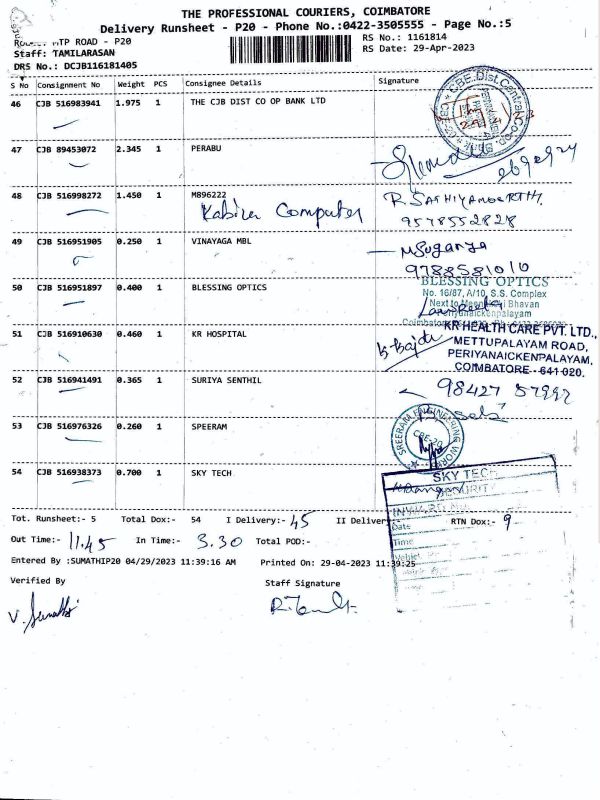 THE PROFESSIONAL COURIERS, COIMBATORE
Delivery Runsheet - P20 - Phone No.:0422-3505555 - Page No.:5
MTP ROAD - P20
RS No.: 1161814
Staff: TAMILARASAN
RS Date: 29-Apr-2023
DRS No.: DCJB116181405
S No Consignment No Weight PCS Consignee Details Signature
46 CJB 516983941 1.975 1 THE CJB DIST CO OP BANK LTD
47 CJB 89453072 2.345 1 PERABU
48 CJB 516998272 1.450 1 M896222 R. SATHIYAMOORTHY
Kabira Computer 9578552828
49 CJB 516951905 0.250 1 VINAYAGA MBL M Suganya
9788581010
50 CJB 516951897 0.400 1 BLESSING OPTICS BLESSING OPTICS
No. 16/87, A/10, S.S. Complex
51 CJB 516910630 0.460 1 KR HOSPITAL KR HEALTH CARE PVT. LTD.,
METTUPALAYAM ROAD,
PERIYANAICKENPALAYAM,
COIMBATORE - 641 020.
52 CJB 516941491 0.365 1 SURIYA SENTHIL 98427
53 CJB 516976326 0.260 1 SPEERAM SREERAM ENGINEERING WORKS
CBE-20
54 CJB 516938373 0.700 1 SKY TECH SKY TECH
Tot. Runsheet:- 5 Total Dox:- 54 I Delivery:- 45 II Deliver RTN Dox:- 9
Date
Out Time:- 11.45 In Time:- 3.30 Total POD:-
Time
Entered By :SUMATHIP20 04/29/2023 11:39:16 AM Printed On: 29-04-2023 11:39:25
Verified By Staff Signature
V. Sumathi